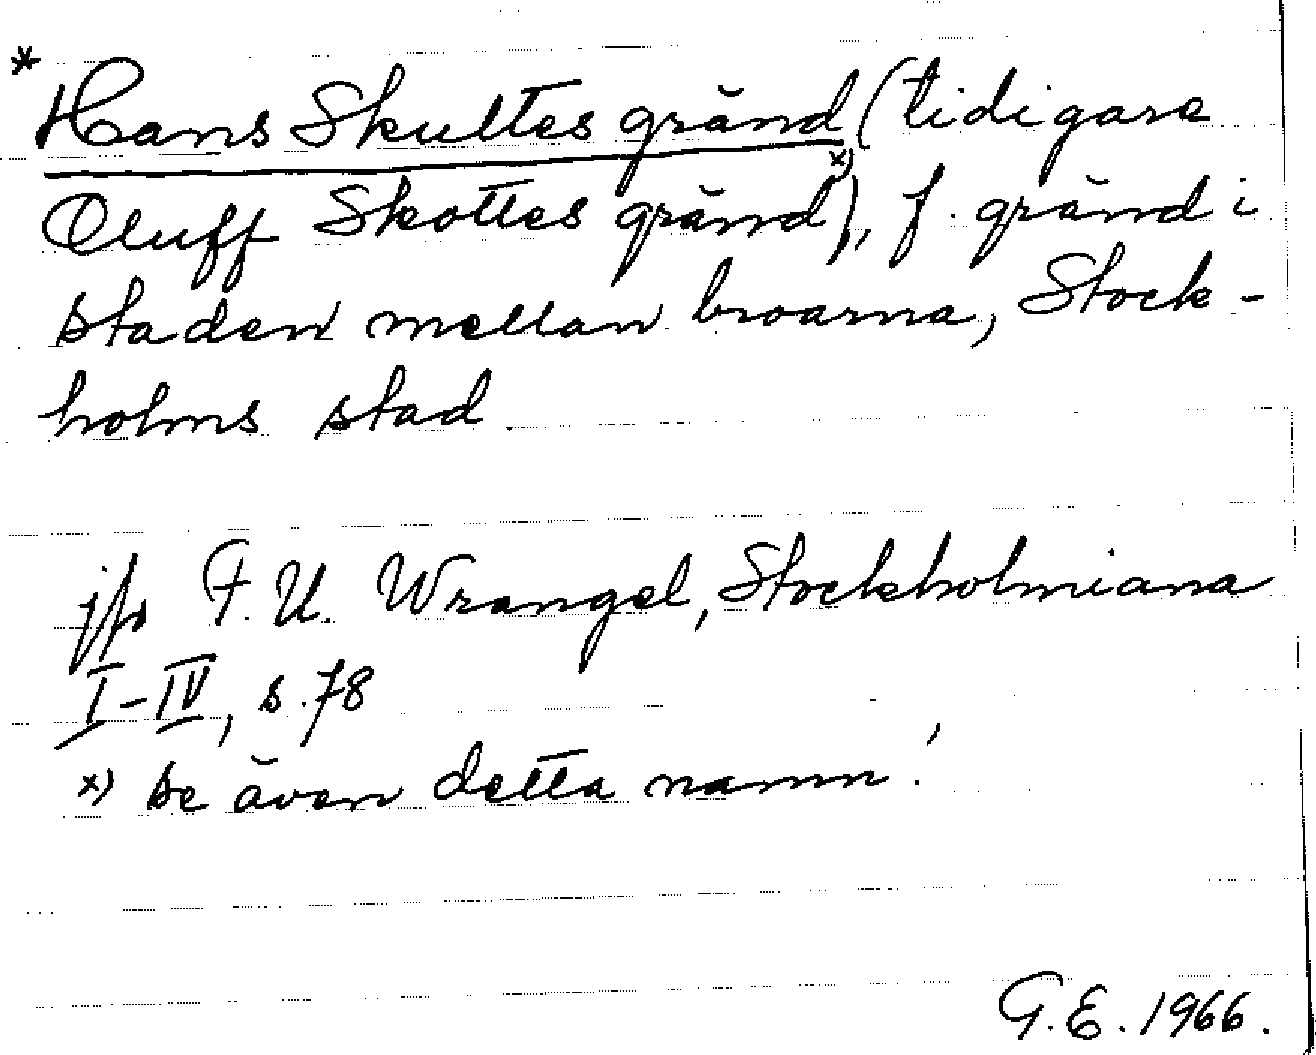 * Hans Skultes gränd (tidigare
Oluff Skottes gränd x)), f. gränd i
staden mellan broarna, Stock-
holms stad
jfr F. U. Wrangel, Stockholmiana
I-IV, s. 78
x) se även detta namn.
G.E. 1966.